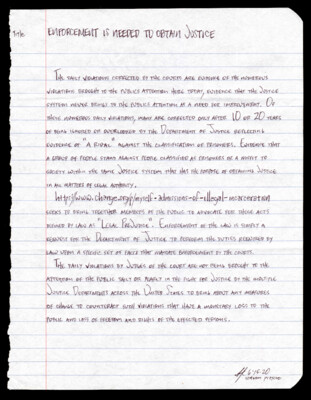 Title: ENFORCEMENT IS NEEDED TO OBTAIN JUSTICE
THE DAILY VIOLATIONS CORRECTED BY THE COURTS ARE EXAMPLE OF THE NUMEROUS
VIOLATIONS BROUGHT TO THE PUBLIC'S ATTENTION HERE TODAY, EVIDENCE THAT THE JUSTICE
SYSTEM NEVER BRINGS TO THE PUBLIC'S ATTENTION AS A NEED FOR IMPROVEMENT. OF
THESE NUMEROUS DAILY VIOLATIONS, MANY ARE CORRECTED ONLY AFTER 10 OR 20 YEARS
OF BEING IGNORED OR OVERLOOKED BY THE DEPARTMENT OF JUSTICE REFLECTING
EVIDENCE OF "A RIVAL" AGAINST THE CLASSIFICATION OF PRISONERS. EVIDENCE THAT
A GROUP OF PEOPLE STAND AGAINST PEOPLE CLASSIFIED AS PRISONERS OR A MISFIT TO
SOCIETY WITHIN THE SAME JUSTICE SYSTEM THAT HAS THE PURPOSE OF OBTAINING JUSTICE
IN ALL MATTERS OF LEGAL AUTHORITY.
LOOKS TO BRING TOGETHER MEMBERS OF THE PUBLIC TO ADVOCATE FOR THOSE ACTS
DEFINED BY LAW AS "LEGAL PREJUDICE". ENFORCEMENT OF THE LAW IS SIMPLY A
REQUEST FOR THE DEPARTMENT OF JUSTICE TO PERFORM THE DUTIES REQUIRED BY
LAW UPON A SPECIFIC SET OF FACTS THAT MANDATE ENFORCEMENT BY THE COURT.
THE DAILY VIOLATIONS BY JUDGES OF THE COURT ARE NOT BEING BROUGHT TO THE
ATTENTION OF THE PUBLIC DAILY OR MAINLY IN THE FIGHT FOR JUSTICE BY THE MULTIPLE
JUSTICE DEPARTMENTS ACROSS THE UNITED STATES TO BRING ABOUT ANY MEASURES
OF CHANGE TO COUNTERACT SUCH VIOLATIONS THAT HAVE A MONETARY LOSS TO THE
PUBLIC AND LOSS OF FREEDOM AND RIGHTS BY THE AFFECTED PERSONS.